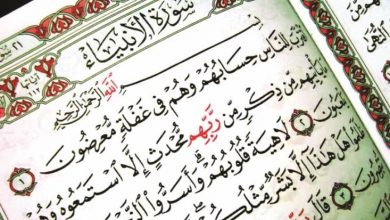 سُورَةُ الْأَنْبِيَاءِ
بِسْمِ اللَّهِ الرَّحْمَٰنِ الرَّحِيمِ
اقْتَرَبَ لِلنَّاسِ حِسَابُهُمْ وَهُمْ فِي غَفْلَةٍ مُّعْرِضُونَ ١
يَأْتِيهِم مِّن ذِكْرٍ مِّن رَّبِّهِم مُّحْدَثٍ إِلَّا اسْتَمَعُوهُ وَهُمْ
٢ لَاهِيَةً قُلُوبُهُمْ وَأَسَرُّوا
هَلْ هَٰذَا إِلَّا بَشَرٌ مِّثْلُكُمْ
٣ قَالَ